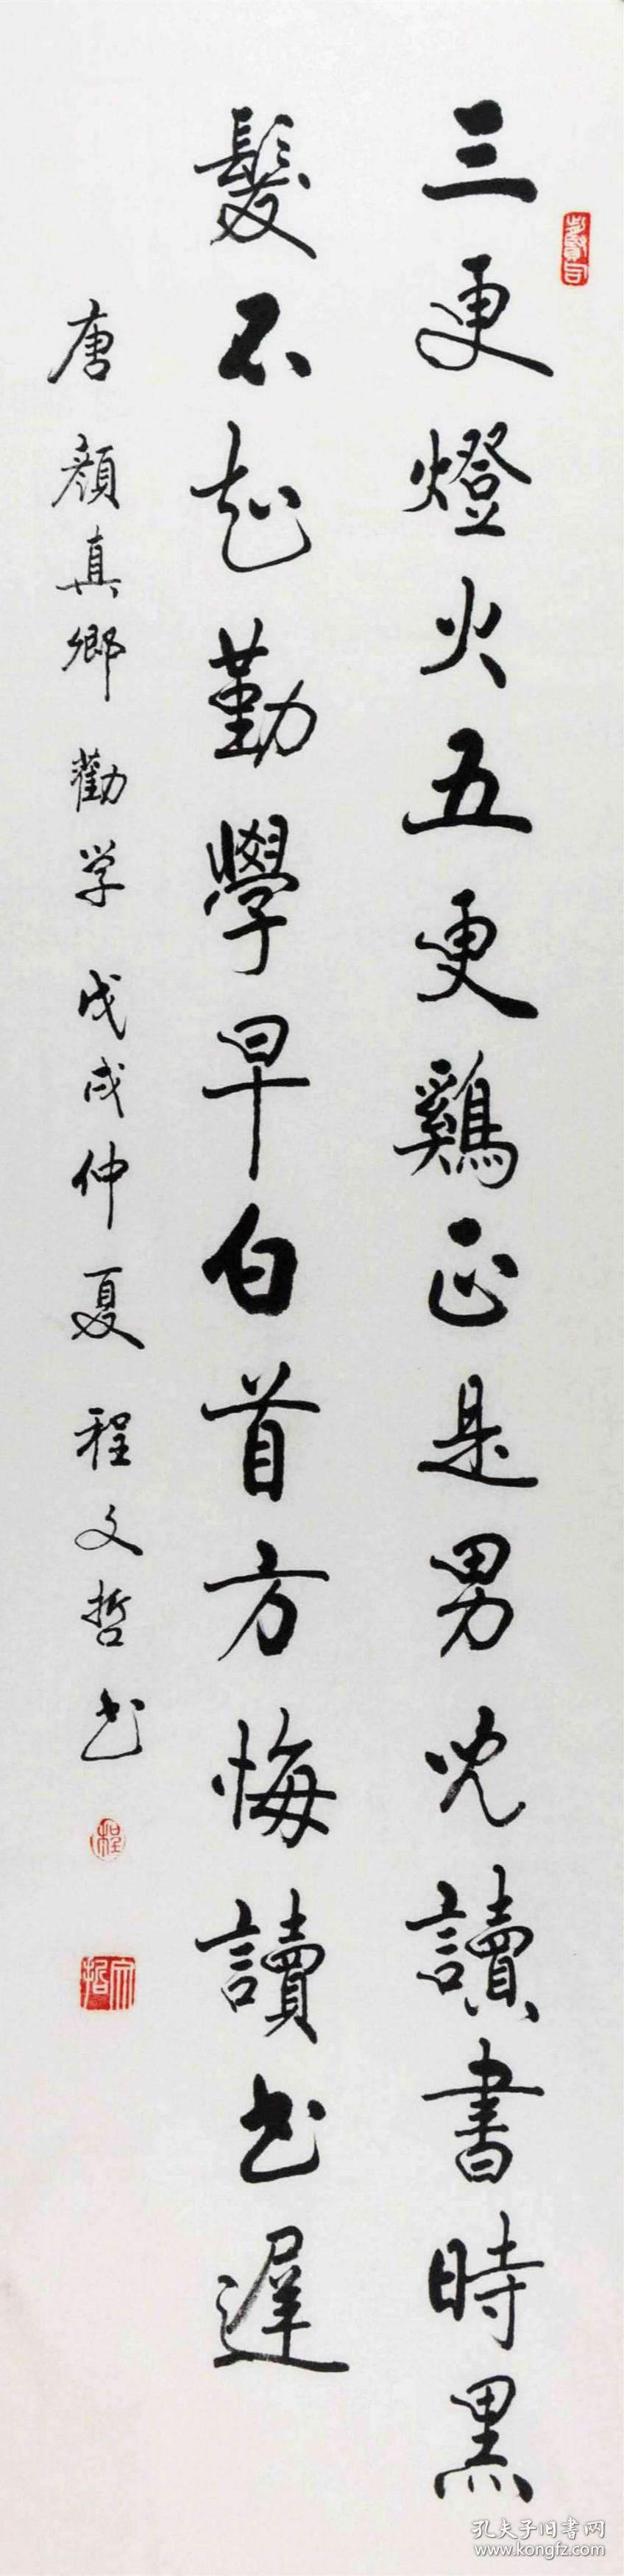 三更燈火五更鷄正是男兒讀書時黑
髮不知勤學早白首方悔讀书遲
唐顏真卿勸学戊戌仲夏程文哲书
程
文哲
孔夫子旧书网
www.kongfz.com